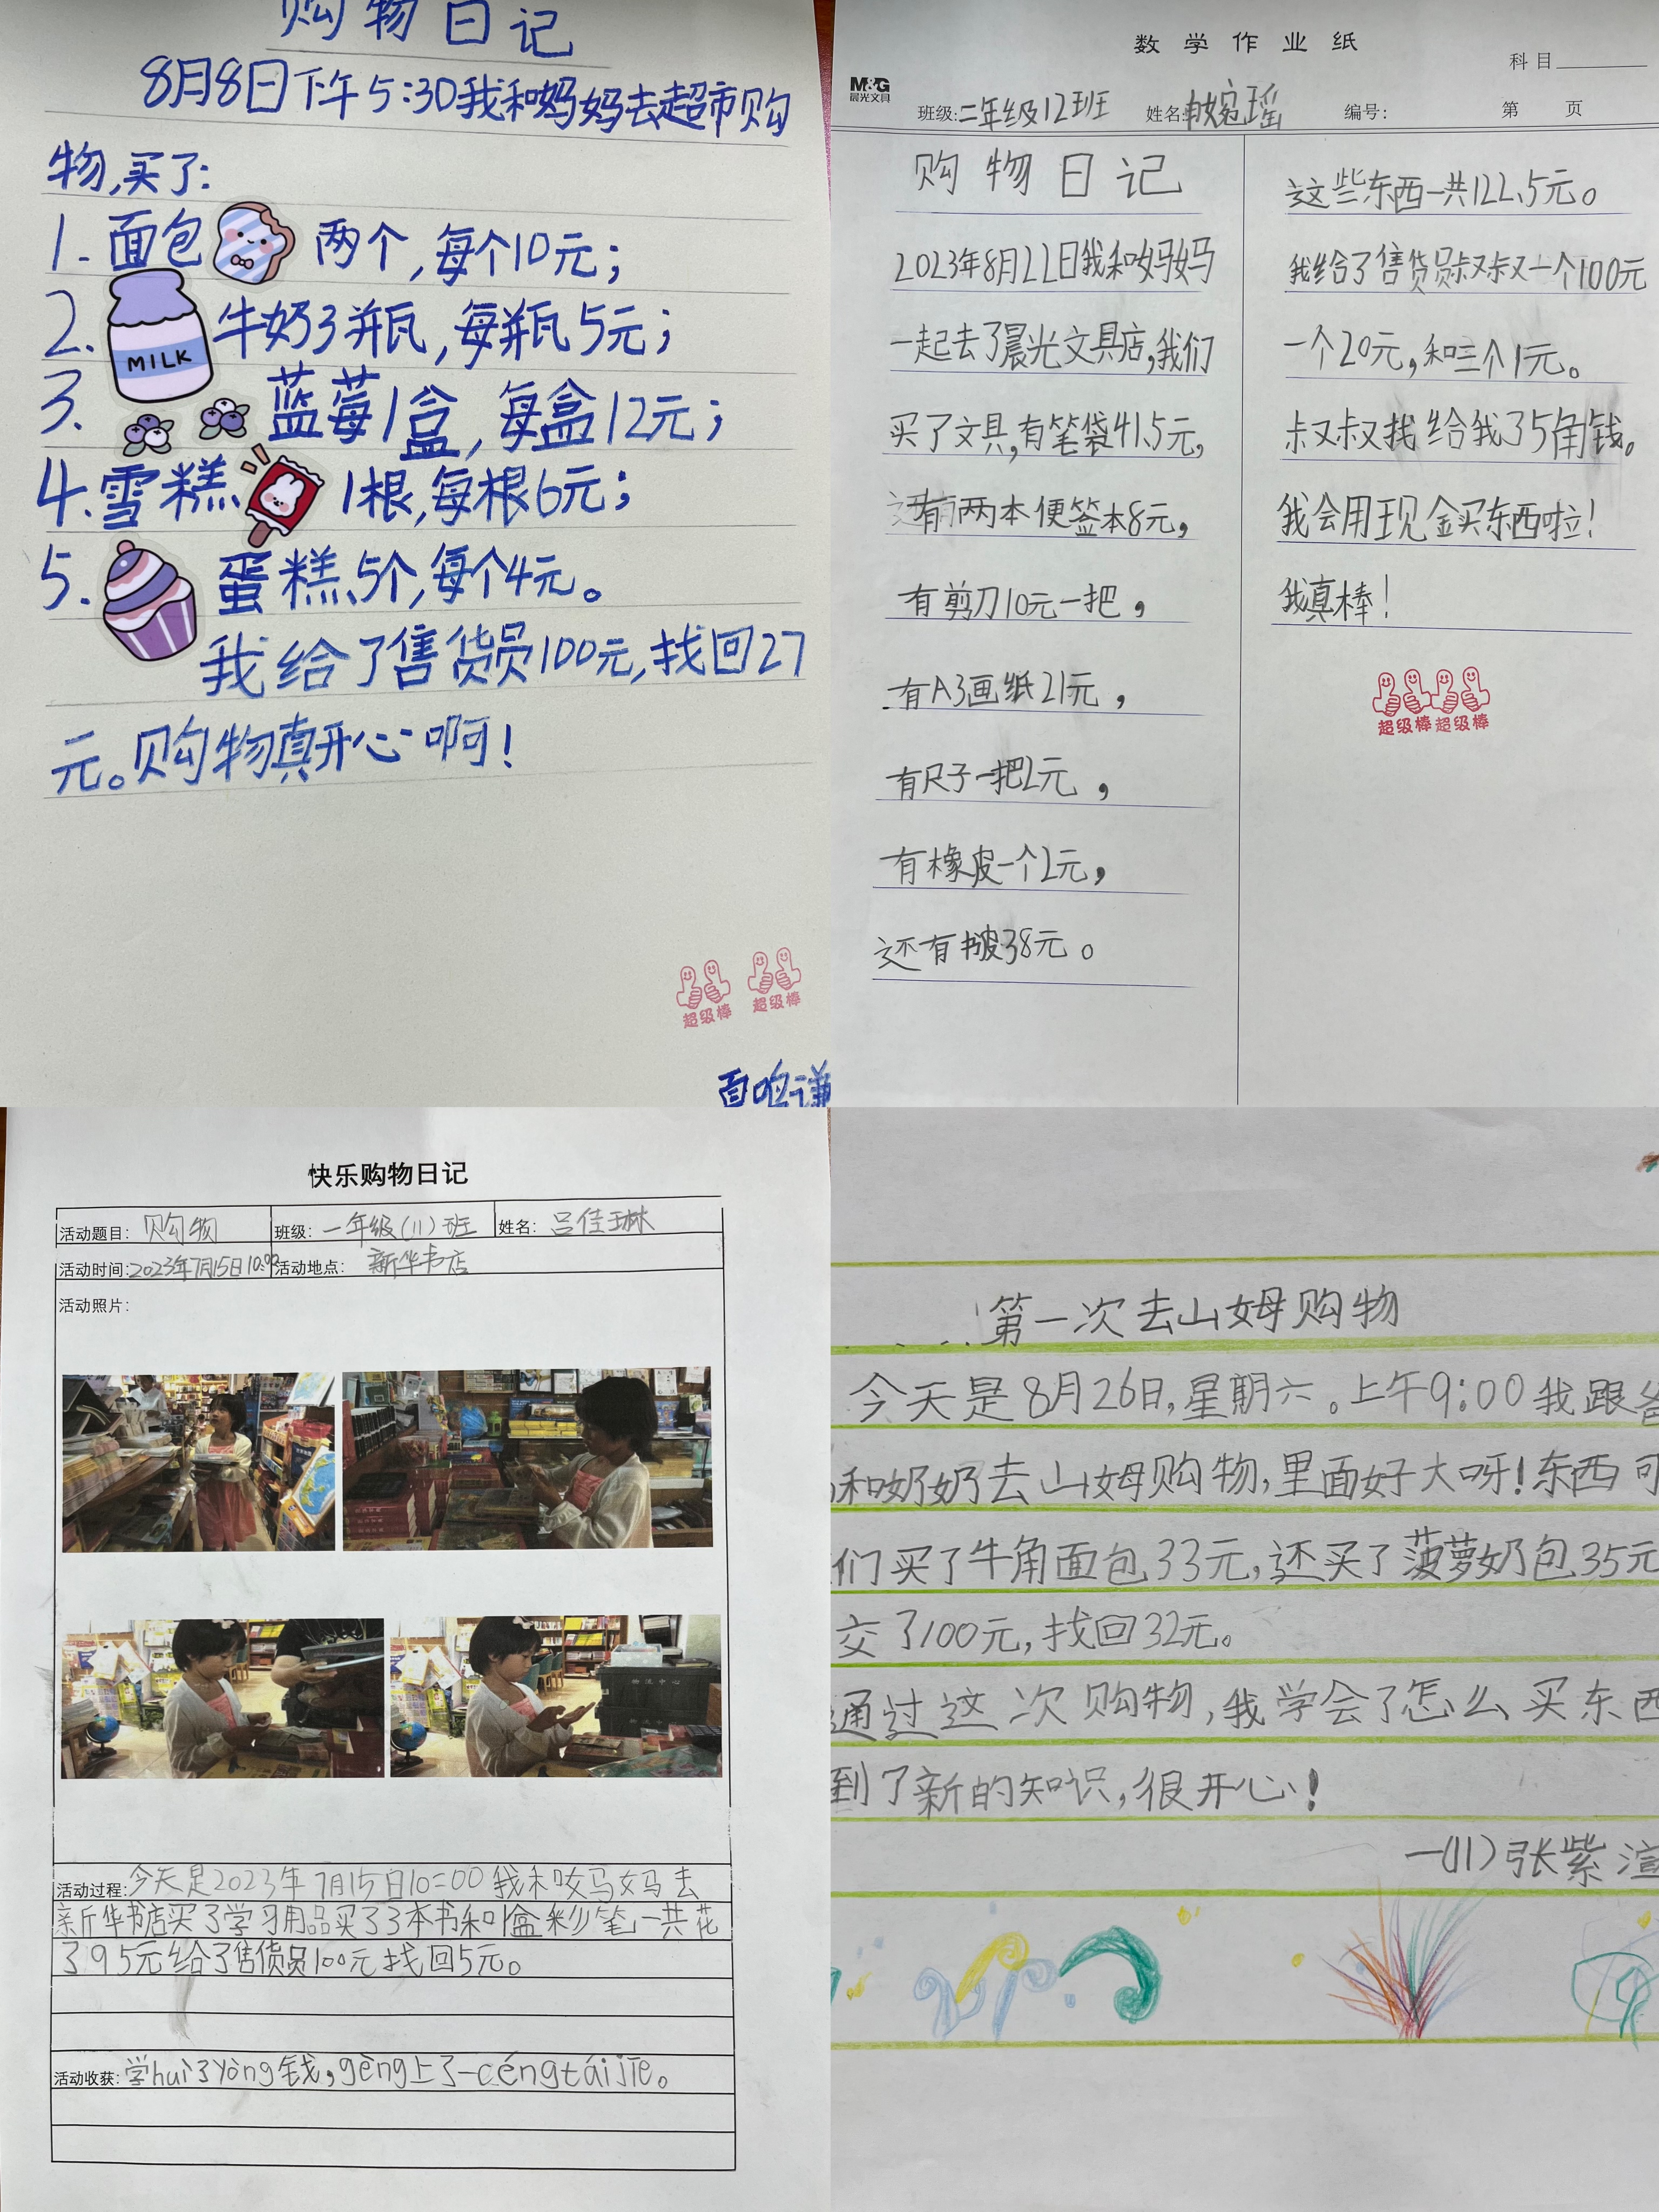 购物日记
8月8日下午5:30我和妈妈去超市购
物,买了:
1.面包 两个,每个10元;
2. MILK 牛奶3瓶,每瓶5元;
3. 蓝莓1盒,每盒12元;
4.雪糕 1根,每根6元;
5. 蛋糕5个,每个4元。
我给了售货员100元,找回27
元。购物真开心啊!
超级棒 超级棒
数学作业纸
科目
M&G
晨光文具
班级:二年级12班 姓名: 婉瑶 编号: 第 页
购物日记
2023年8月22日我和妈妈
一起去了晨光文具店,我们
买了文具,有笔袋41.5元,
有两本便签本8元,
有剪刀10元一把,
有A3画纸21元,
有尺子一把2元,
有橡皮一个2元,
还有书皮38元。
这些东西一共122.5元。
我给了售货员叔叔一个100元
一个20元,和三个1元。
叔叔找给我了5角钱。
我会用现金买东西啦!
我真棒!
超级棒 超级棒
快乐购物日记
活动题目: 购物 班级: 一年级(11)班 姓名: 吕佳琳
活动时间:2023年7月15日10:00 活动地点: 新华书店
活动照片:
活动过程:今天是2023年7月15日10:00我和妈妈去
新华书店买了学习用品买了3本书和1盒彩笔一共花
了95元给了售货员100元找回5元。
活动收获: 学huì了yòng钱,gèng上了一céngtáijiē。
第一次去山姆购物
今天是8月26日,星期六。上午9:00我跟爸
和奶奶去山姆购物,里面好大呀!东西可
们买了牛角面包33元,还买了菠萝奶包35元
交了100元,找回32元。
通过这次购物,我学会了怎么买东西
到了新的知识,很开心!
一(11)张紫渲